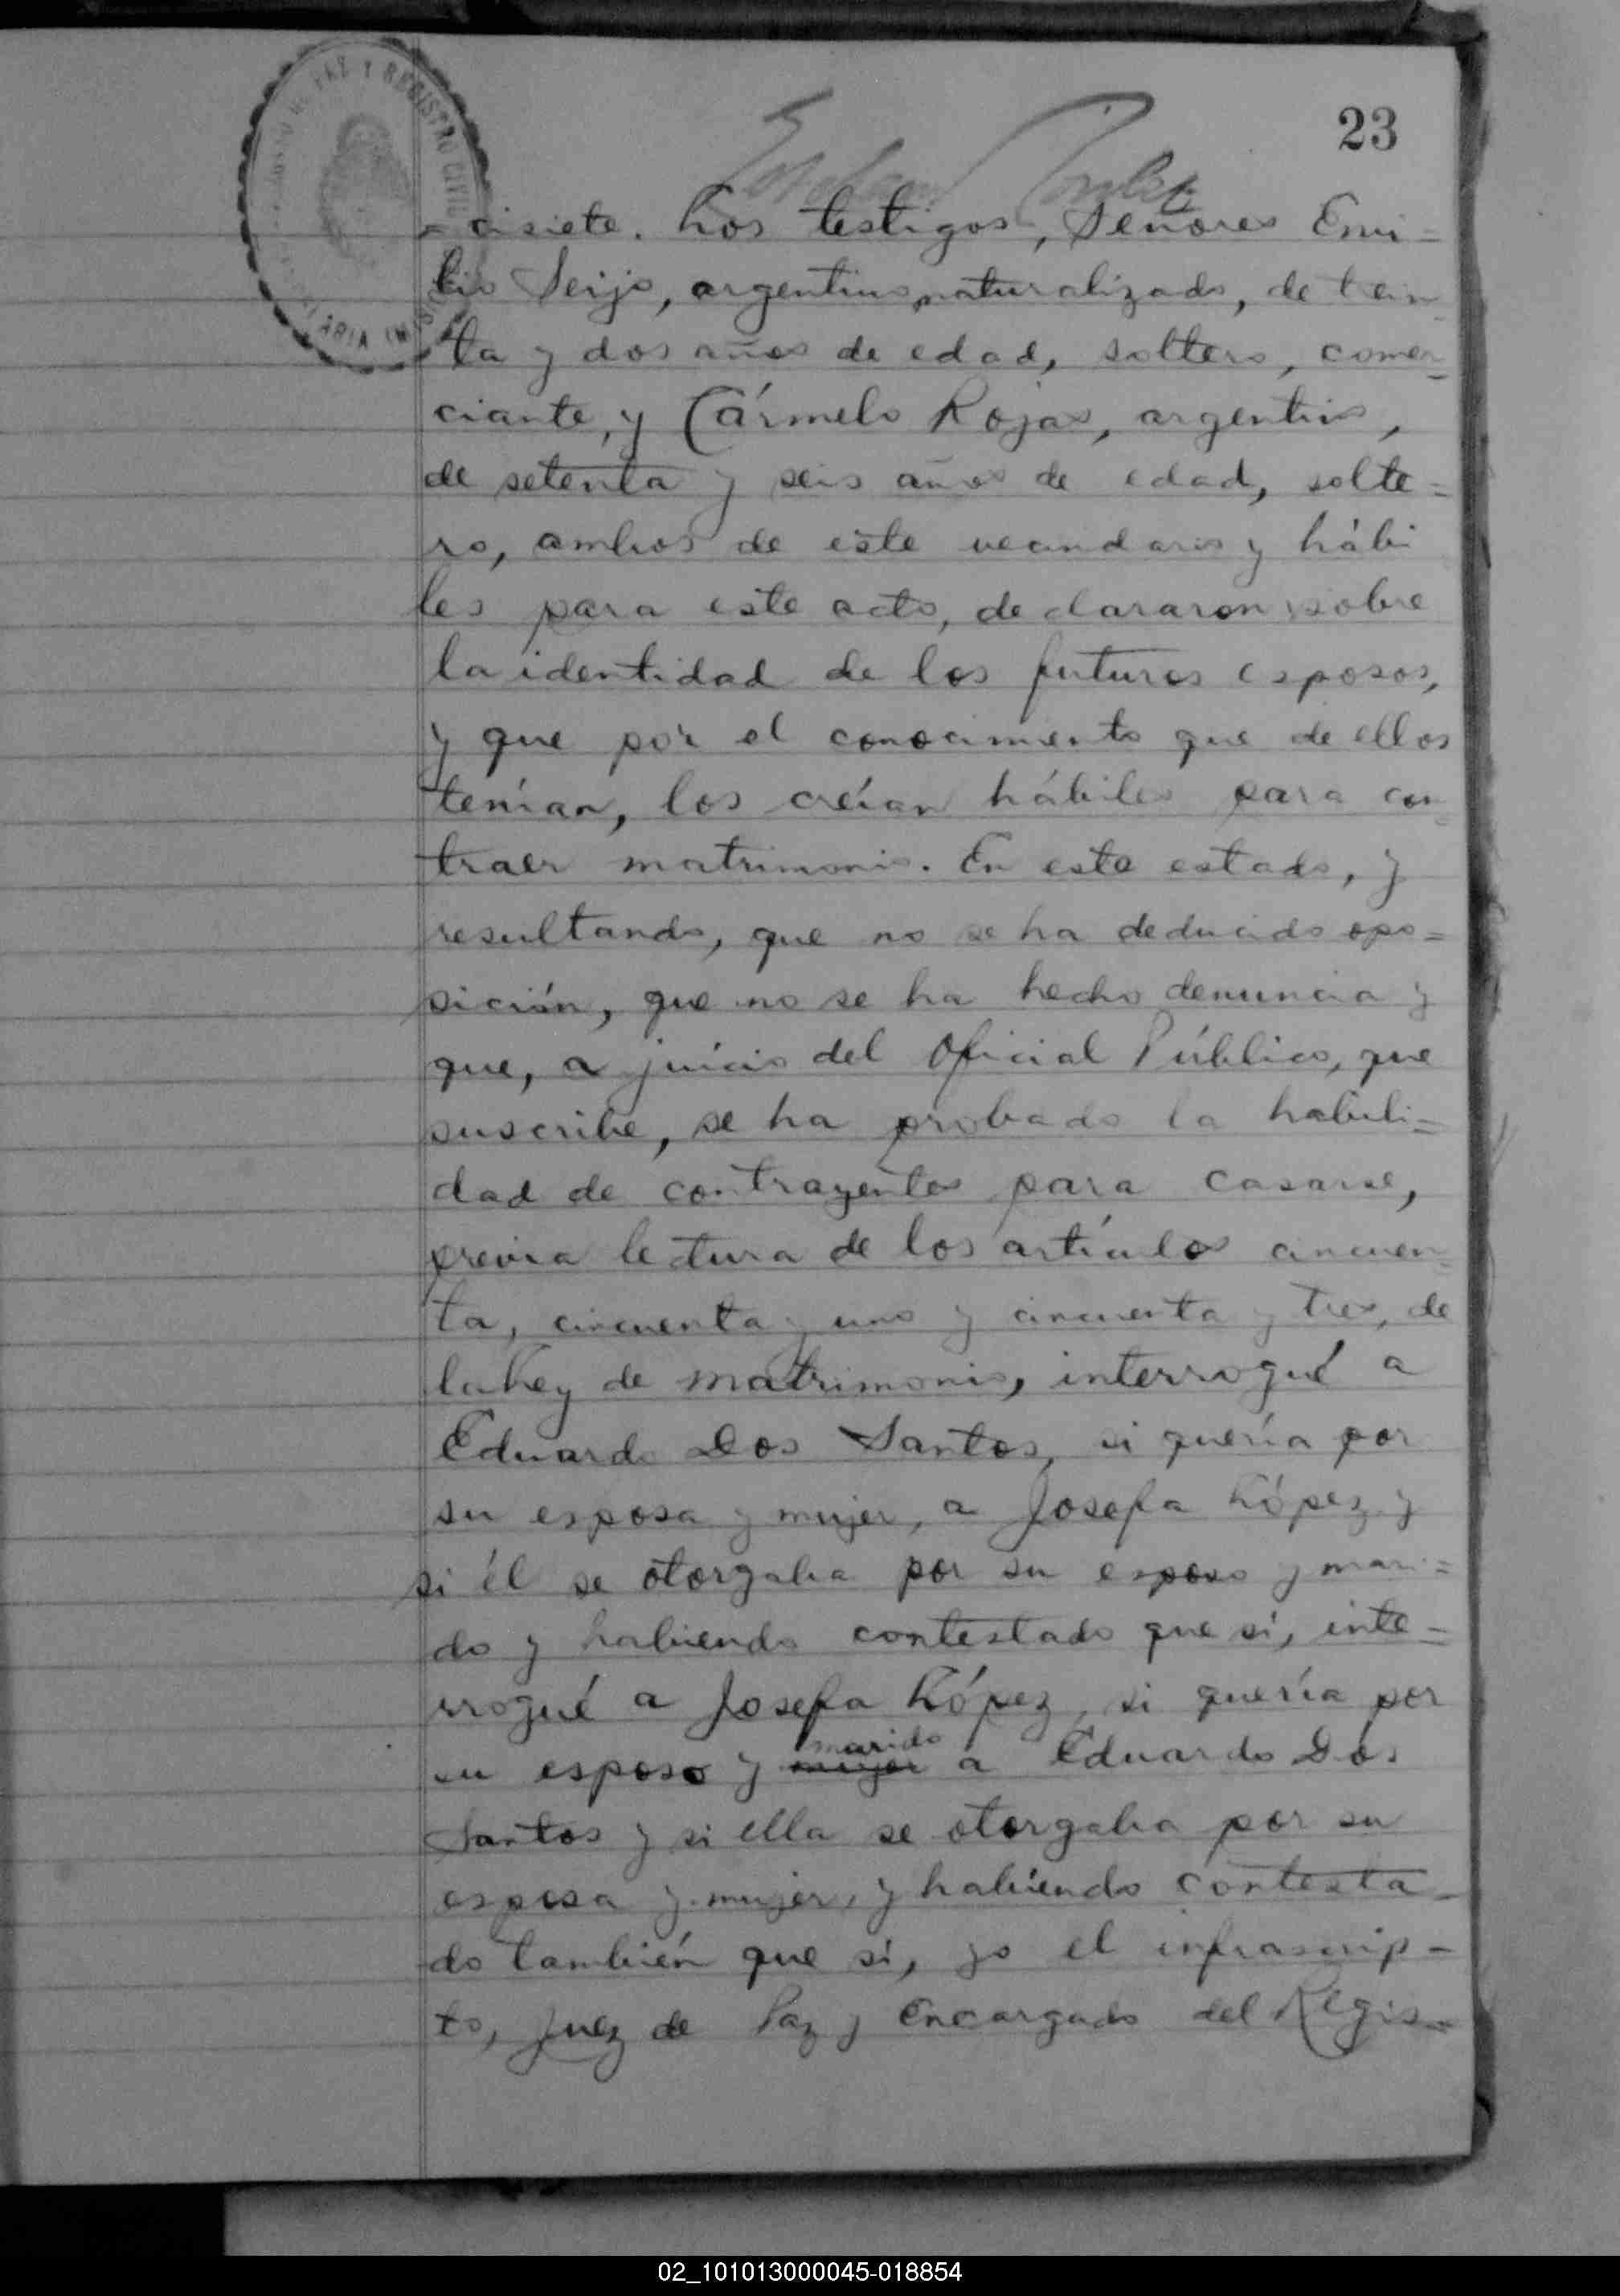 23
cisiete. Los testigos, Señores Emi=
lio Seijo, argentino naturalizado, de trein
ta y dos años de edad, soltero, comer
ciante, y Cármelo Rojas, argentino,
de setenta y seis años de edad, solte=
ro, ambos de este vecindario y hábi
les para este acto, declararon sobre
la identidad de los futuros esposos,
y que por el conocimiento que de ellos
tenían, los creían hábiles para con
traer matrimonio. En este estado, y
resultando, que no se ha deducido opo=
sición, que no se ha hecho denuncia y
que, a juicio del Oficial Público, que
suscribe, se ha probado la habili=
dad de contrayentes para casarse,
previa lectura de los artículos cincuen
ta, cincuenta y uno y cincuenta y tres, de
la Ley de matrimonio, interrogué a
Eduardo Dos Santos, si quería por
su esposa y mujer, a Josefa López y
si él se otorgaba por su esposo y mari=
do y habiendo contestado que sí, inte=
rrogué a Josefa López, si quería por
marido
su esposo y mujer a Eduardo Dos
Santos y si ella se otorgaba por su
esposa y mujer, y habiendo contesta-
do también que sí, yo el infrascrip-
to, Juez de Paz y Encargado del Regis-
02_101013000045-018854